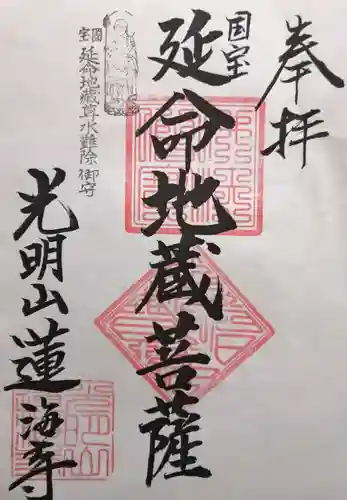 奉拝
国宝
延命地蔵菩薩
国宝
延命地蔵尊水難除御守
光明山蓮海寺